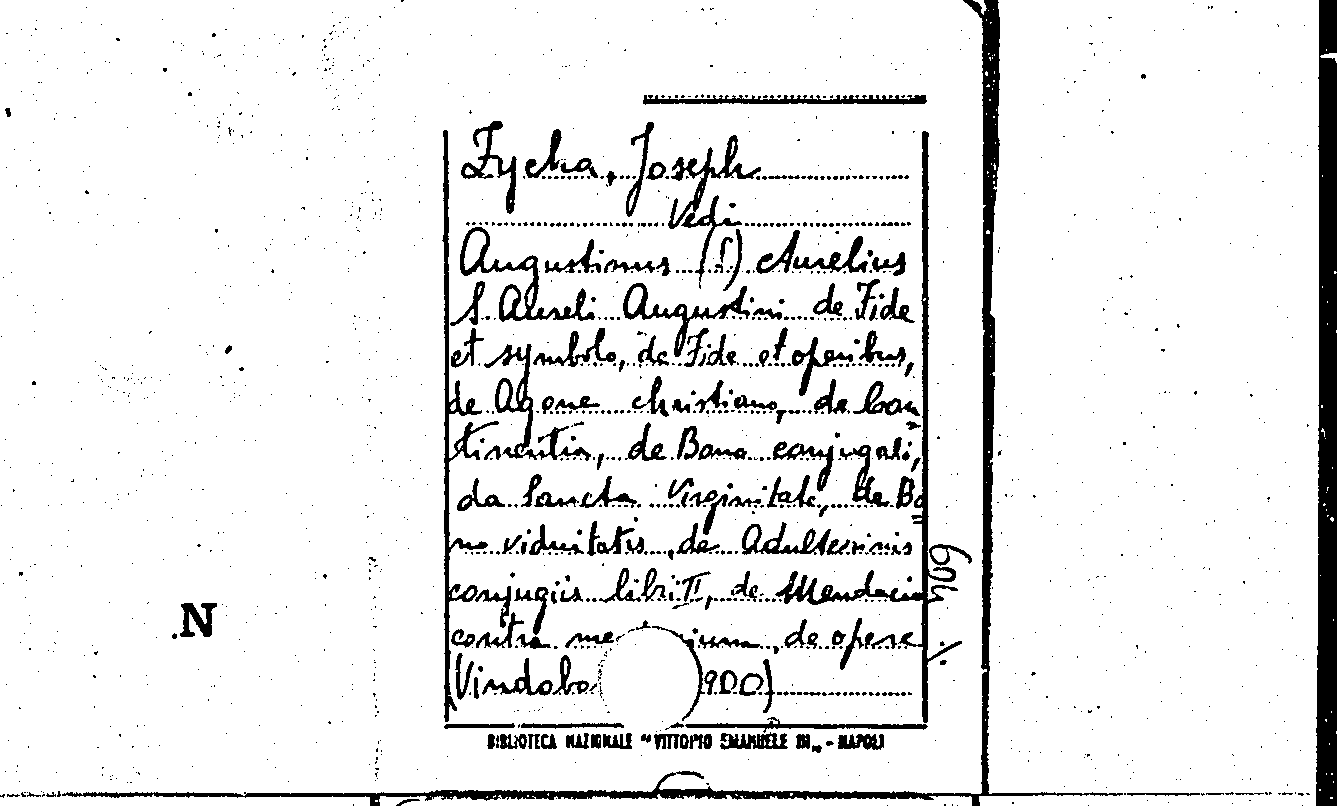 Zycha, Joseph
Vedi
Augustinus (S) Aurelius
S. Aureli Augustini de Fide
et symbolo, de Fide et operibus,
de Agone christiano, de Con
tinentia, de Bono conjugali,
da Sancta Virginitate, de Bo
no viduitatis, de Adulterinis
conjugiis libri II, de Mendacio
contra me ium, de opere
(Vindobo 900)
BIBLIOTECA NAZIONALE "VITTORIO EMANUELE III" - NAPOLI
N